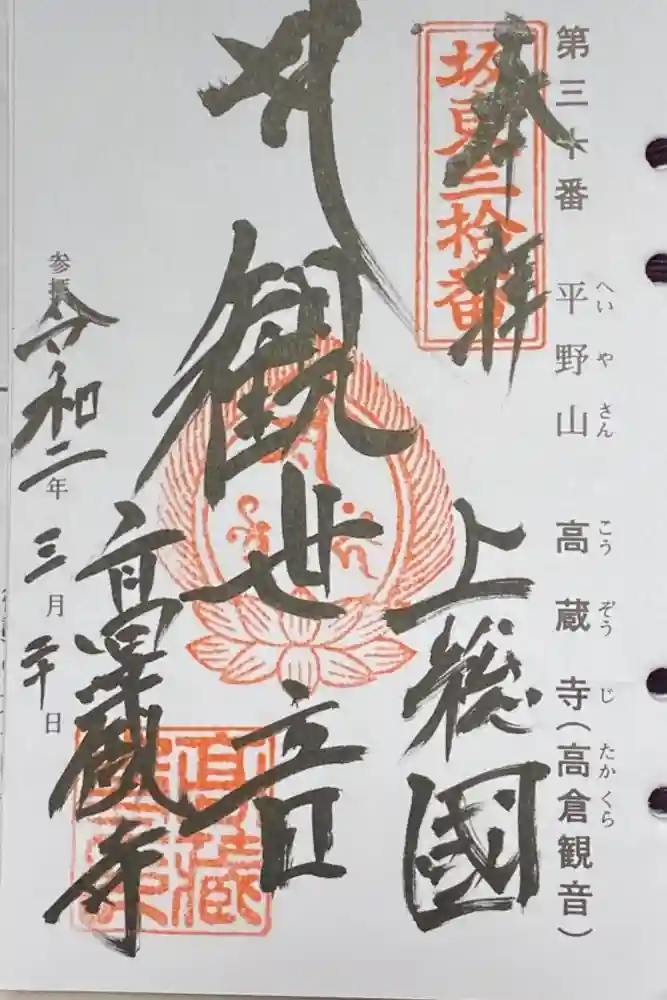 第三十番 平野山 高蔵寺(高倉観音)
へいやさん こうぞうじ たかくら
坂東三拾番
奉拝
上総國
観世音
高蔵寺
参拝 令和二年三月二十日